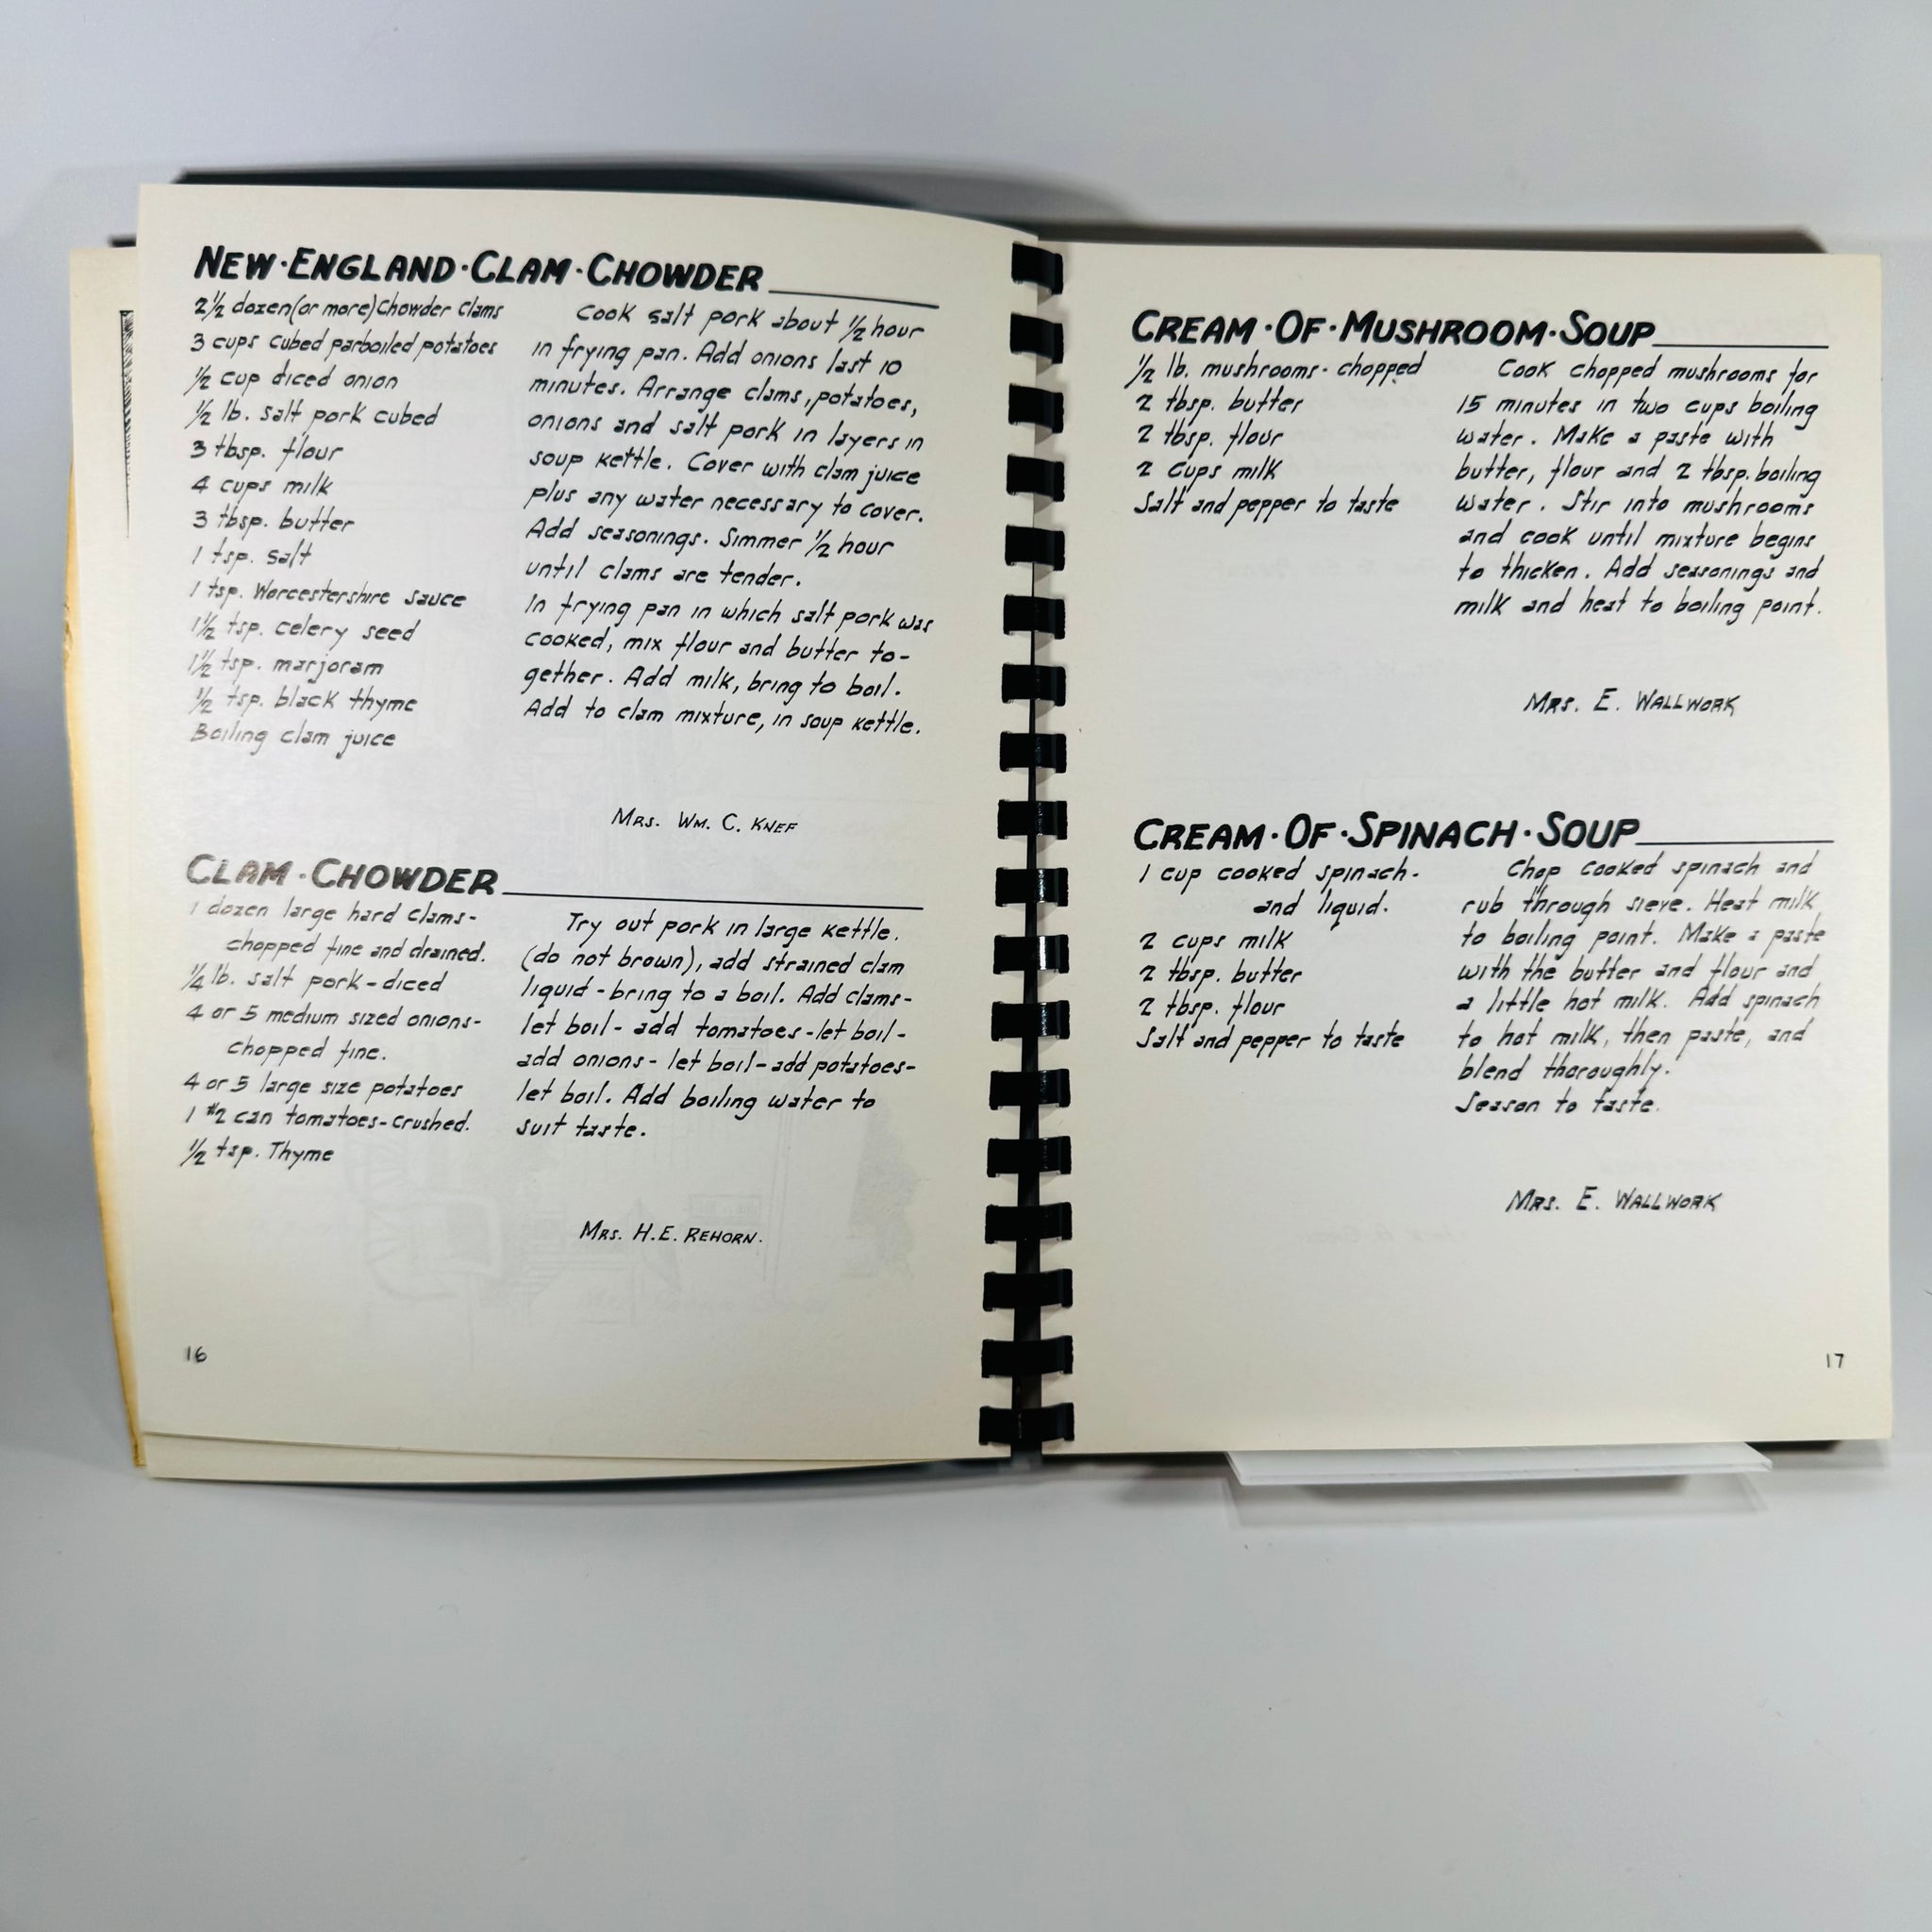 NEW·ENGLAND·CLAM·CHOWDER
2½ dozen (or more) Chowder Clams
3 cups cubed parboiled potatoes
½ cup diced onion
½ lb. salt pork cubed
3 tbsp. flour
4 cups milk
3 tbsp. butter
1 tsp. salt
1 tsp. Worcestershire sauce
1½ tsp. celery seed
1½ tsp. marjoram
½ tsp. black thyme
Boiling clam juice
Cook salt pork about ½ hour
in frying pan. Add onions last 10
minutes. Arrange clams, potatoes,
onions and salt pork in layers in
soup kettle. Cover with clam juice
plus any water necessary to cover.
Add seasonings. Simmer ½ hour
until clams are tender.
In frying pan in which salt pork was
cooked, mix flour and butter to-
gether. Add milk, bring to boil.
Add to clam mixture, in soup kettle.
MRS. WM. C. KNEF
CLAM·CHOWDER
1 dozen large hard clams-
chopped fine and drained.
¼ lb. salt pork - diced
4 or 5 medium sized onions-
chopped fine.
4 or 5 large size potatoes
1 #2 can tomatoes-crushed.
½ tsp. Thyme
Try out pork in large kettle.
(do not brown), add strained clam
liquid - bring to a boil. Add clams-
let boil - add tomatoes - let boil -
add onions - let boil - add potatoes-
let boil. Add boiling water to
suit taste.
MRS. H.E. REHORN.
16
CREAM·OF·MUSHROOM·SOUP
½ lb. mushrooms - chopped
2 tbsp. butter
2 tbsp. flour
2 cups milk
Salt and pepper to taste
Cook chopped mushrooms for
15 minutes in two cups boiling
water. Make a paste with
butter, flour and 2 tbsp. boiling
water. Stir into mushrooms
and cook until mixture begins
to thicken. Add seasonings and
milk and heat to boiling point.
MRS. E. WALLWORK
CREAM·OF·SPINACH·SOUP
1 cup cooked spinach-
and liquid.
2 cups milk
2 tbsp. butter
2 tbsp. flour
Salt and pepper to taste
Chop cooked spinach and
rub through sieve. Heat milk
to boiling point. Make a paste
with the butter and flour and
a little hot milk. Add spinach
to hot milk, then paste, and
blend thoroughly.
Season to taste.
MRS. E. WALLWORK
17